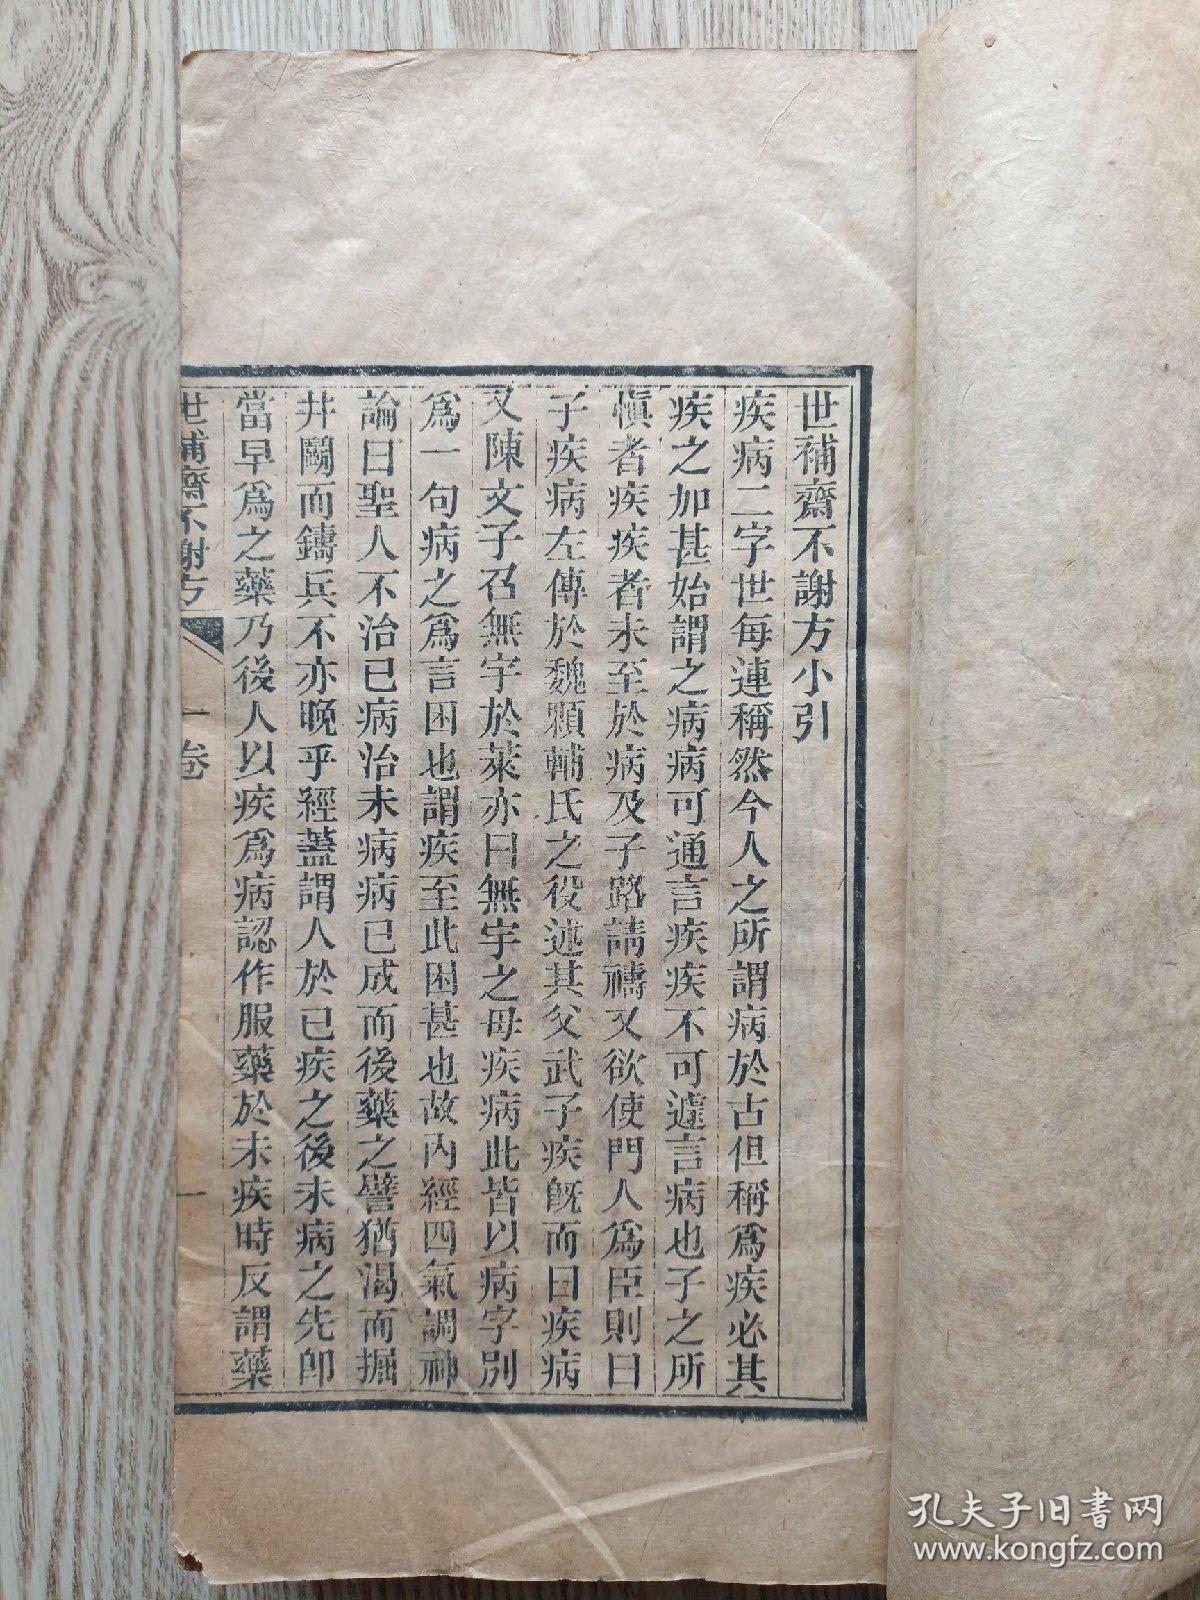 世補齋不謝方小引
疾病二字世每連稱然今人之所謂病於古但稱爲疾必其
疾之加甚始謂之病病可通言疾疾不可遽言病也子之所
愼者疾疾者未至於病及子路請禱又欲使門人爲臣則曰
子疾病左傳於魏顆輔氏之役述其父武子疾旣而曰疾病
又陳文子召無宇於萊亦曰無宇之母疾病此皆以病字別
爲一句病之爲言困也謂疾至此困甚也故內經四氣調神
論曰聖人不治已病治未病病已成而後藥之譬猶渴而掘
井鬬而鑄兵不亦晚乎經蓋謂人於已疾之後未病之先卽
當早爲之藥乃後人以疾爲病認作服藥於未疾時反謂藥
世補齋不謝方 一卷 一
孔夫子旧书网
www.kongfz.com